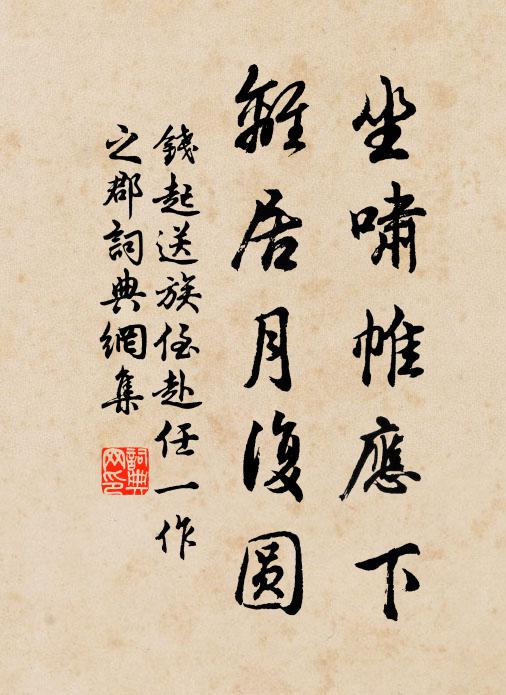 坐嘯帷應下
離居月復圓
錢起送族侄赴任一作
之郡詞典網集
詞典
网印